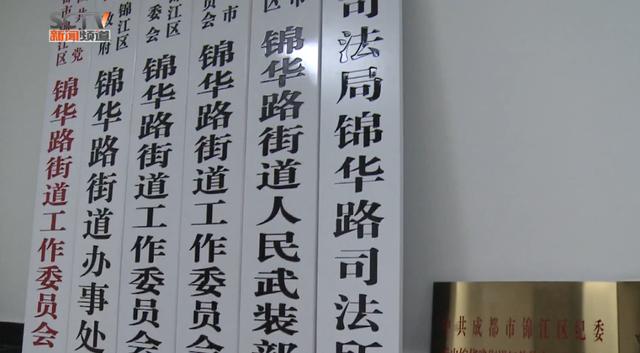 SCTV
新闻频道
锦华路街道工作委员会
锦江区
府
锦华路街道办事处
锦江区
委会
锦华路街道工作委员会
市
员会
锦华路街道工作委员会
市
区
锦华路街道人民武装部
司法局锦华路司法所
中共成都市锦江区纪委